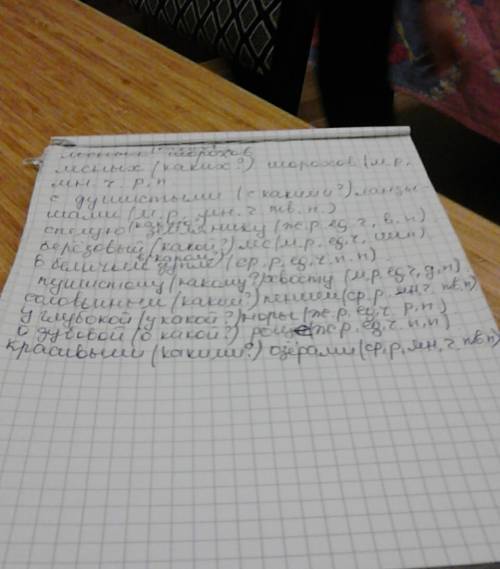 шорохов
лесных (каких?) шорохов (м.р.
мн.ч. р.п
с душистыми (с какими?) ланды-
шами (м.р., мн.ч тв.п.)
спелую (какую?) чернику (ж.р. ед.ч, в.п)
берёзовый (какой?) лес (м.р. ед.ч, им.п)
в беличьем (в каком?) дупле (ср.р, ед.ч. п.п.)
пушистому (какому?) хвосту (м.р. ед.ч, д.п)
соловьиным (каким?) пением (ср.р. ч тв.п)
у глубокой (у какой?) норы (ж.р. ед.ч, р.п)
о дубовой (о какой?) роще (ж.р. ед.ч. п.п)
красивыми (какими?) озёрами (ср.р, мн.ч тв.п)